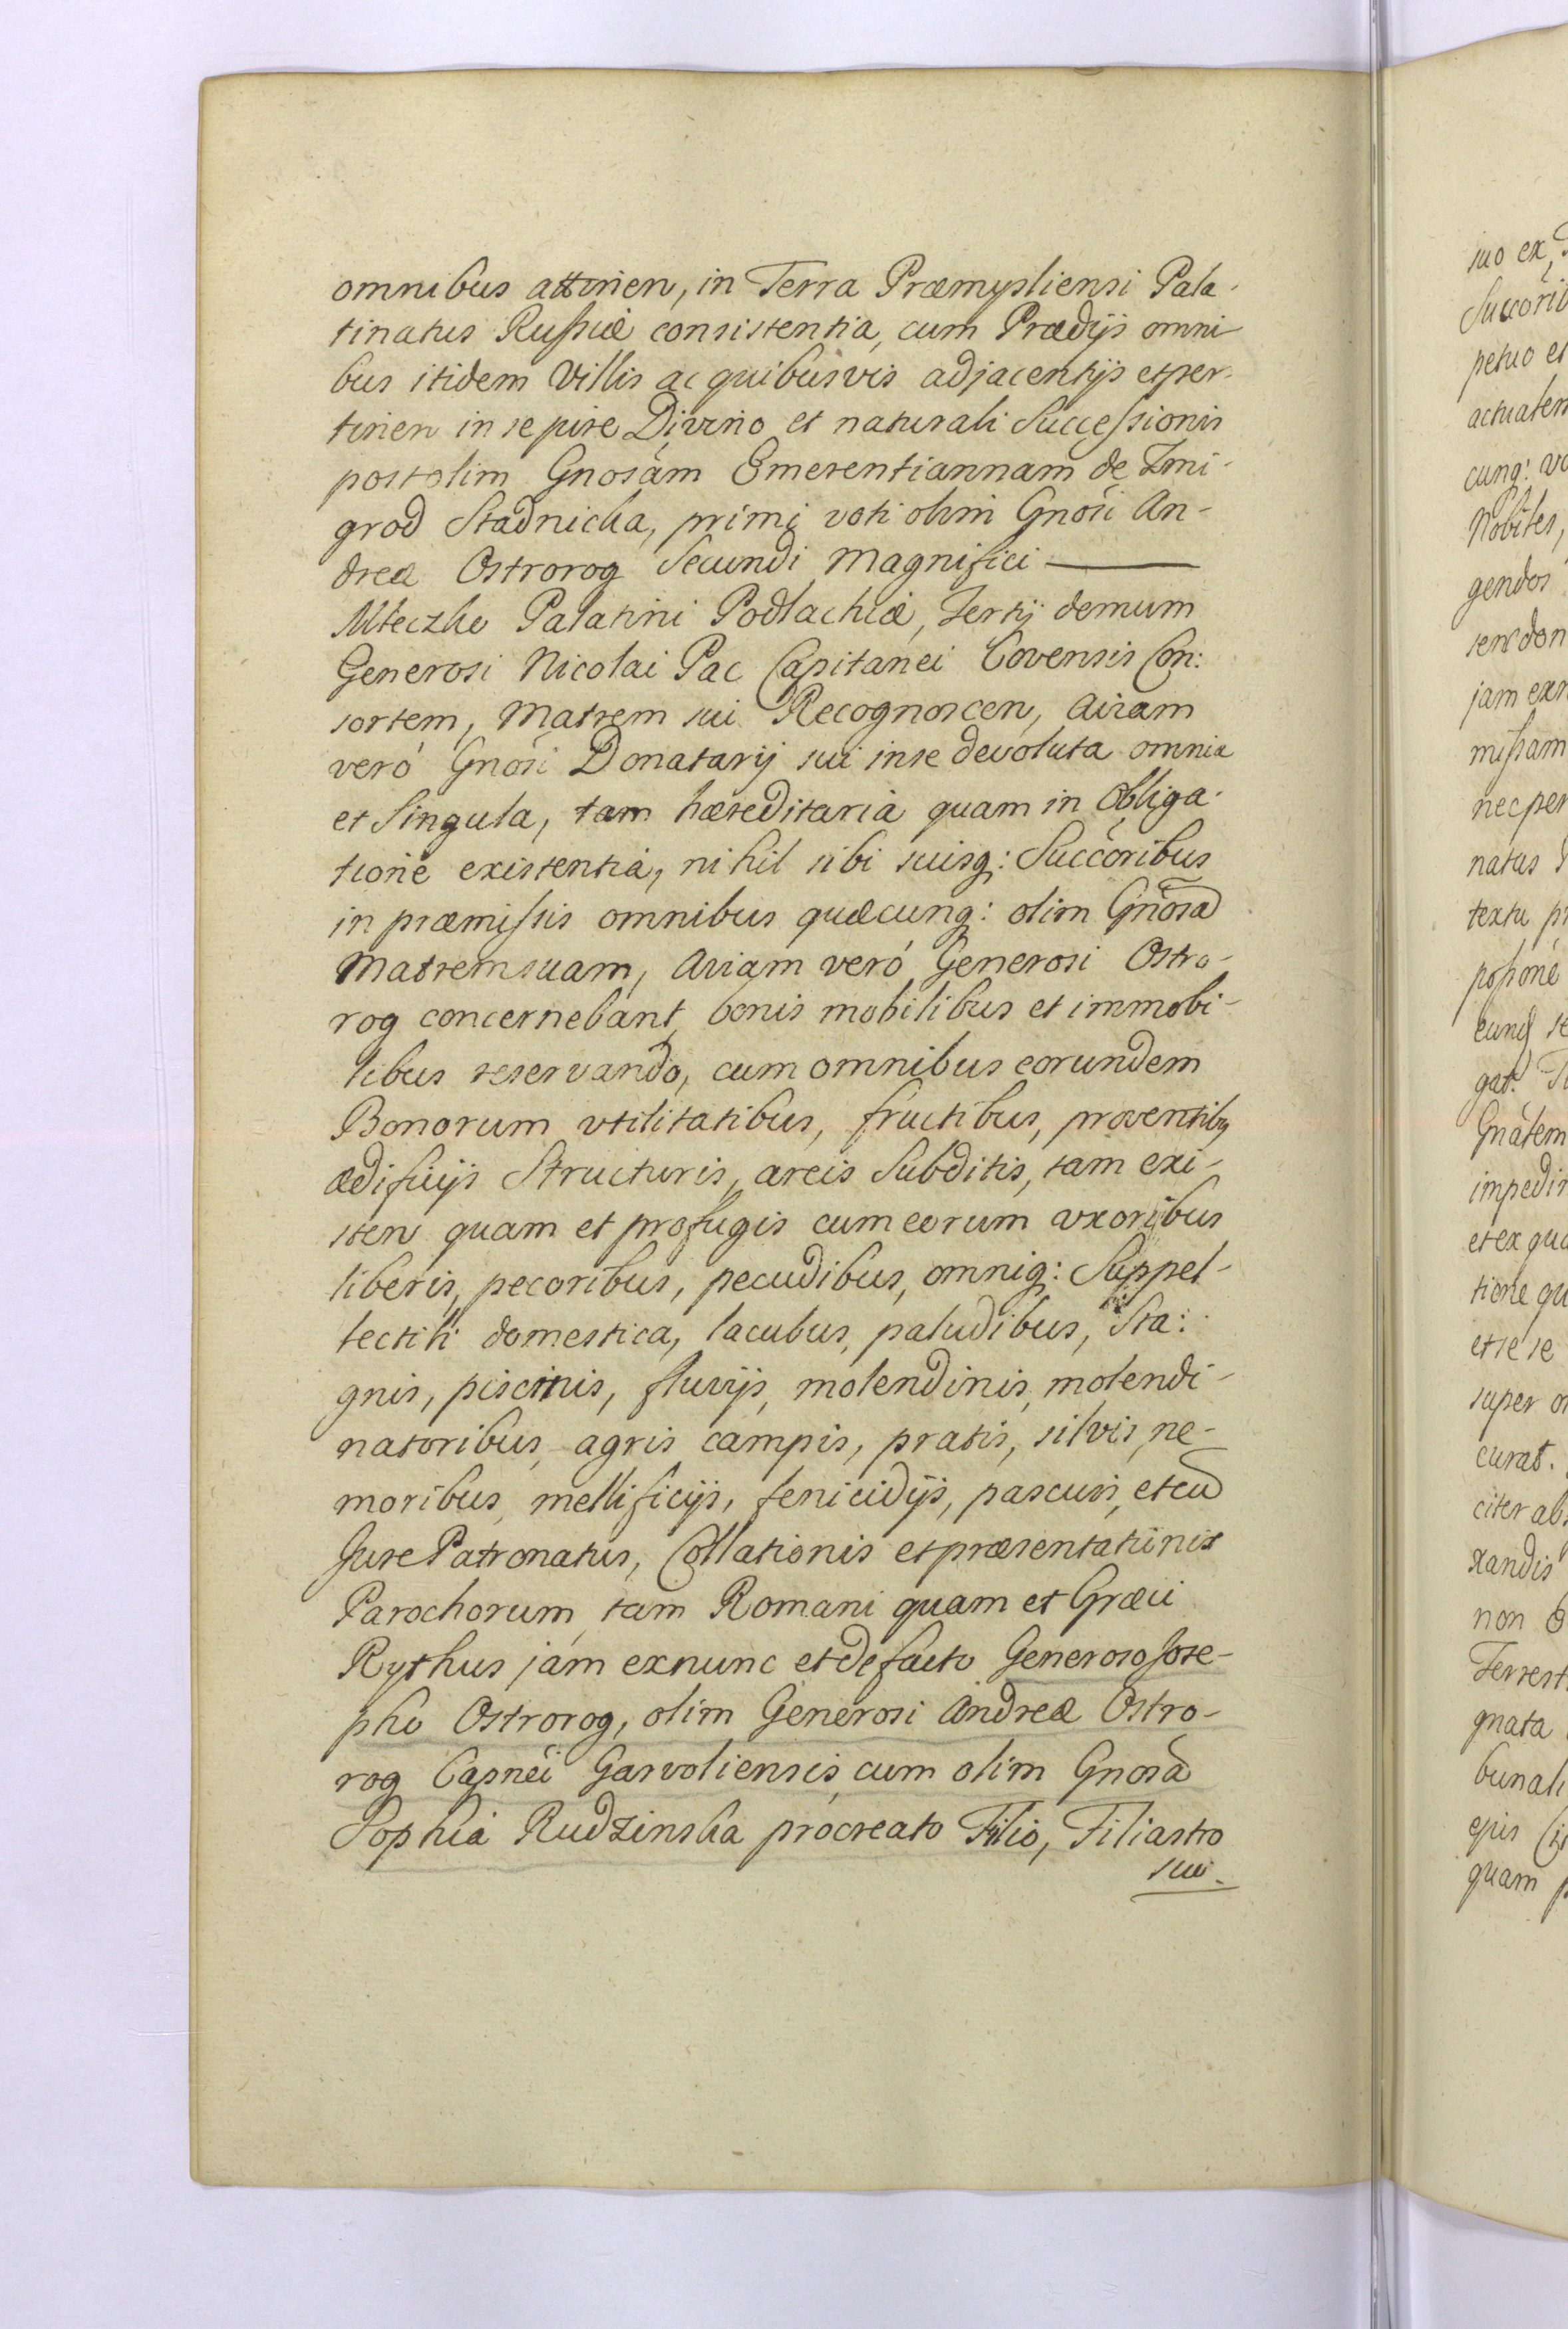 omnibus attinen, in Terra Præmysliensi Pala-
tinatus Russiæ consistentia, cum Prædijs omni
bus itidem Villis ac quibusvis adjacentijs et per-
tinen in se pure Divino et naturali Successionis
post olim Gnosam Emerentiannam de Zmi-
grod Stadnicka, primi voti olim Gnosi An-
dreæ Ostrorog Secundi Magnifici
Mleczko Palatini Podlachiæ, Tertij demum
Generosi Nicolai Pac Capitanei Covensis Con:
sortem, Matrem sui Recognoscen, Aviam
veró Gnosi Donatarij sui in se devoluta omnia
et Singula, tam hæreditaria quam in Obliga-
tione existentia, nihil sibi suisq: Succoribus
in præmissis omnibus quæcunq: olim Gnosa
Matrem suam, Aviam veró Generosi Ostro-
rog concernebant, bonis mobilibus et immobi-
libus reservando, cum omnibus eorundem
Bonorum utilitatibus, fructibus, proventibꝰ
ædificijs Structuris, areis Subditis, tam exi-
sten quam et profugis cum eorum uxoribus
liberis, pecoribus, pecudibus, omniq: Suppel-
lectili domestica, lacubus, paludibus, Sta:
gnis, piscinis, fluvijs, molendinis, molendi-
natoribus, agris campis, pratis, silvis, ne-
moribus, mellificijs, fenicidijs, pascuis, et cū
Jure Patronatus, Collationis et præsentationis
Parochorum, tam Romani quam et Græci
Rythus jam ex nunc et de facto Generoso Jose-
pho Ostrorog, olim Generosi Andreæ Ostro-
rog Capnei Garvoliensis, cum olim Gnosa
Sophia Rudzinska procreato Filio, Filiastro
suo.
suo ex
petuo et
cunq:
Nobiles,
gendos
jam
missam
nec per
natus
textu
gat.
Gnalem
et ex
tione
et se se
super
curat.
citer
xandis
non
gnata
bunali
ejus
quam